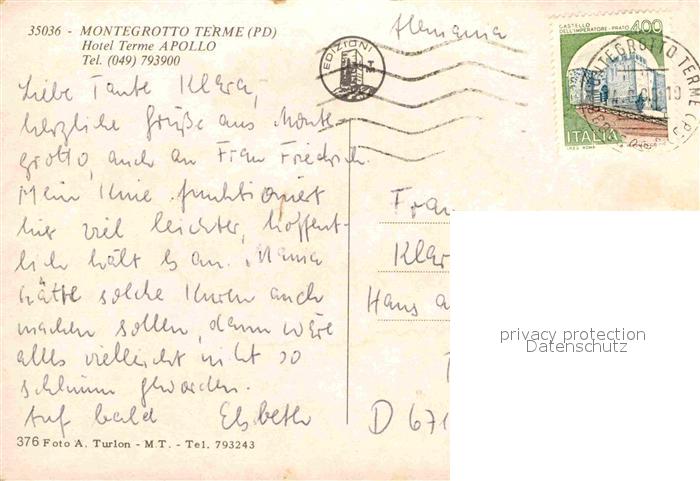 35036 - MONTEGROTTO TERME (PD)
Hotel Terme APOLLO
Tel. (049) 793900
EDIZIONI
T
M
Alemania
CASTELLO
DELL'IMPERATORE - PRATO
400
ITALIA
I.P.Z.S. ROMA
MONTEGROTTO TERME (PD)
Liebe Tante Klara,
herzliche Grüße aus Monte-
grotto, auch an Frau Friedrich.
Mein Knie funktioniert
hier viel leichter, hoffent-
lich hält es an. Mama
hätte solche Kuren auch
machen sollen, dann wäre
alles vielleicht nicht so
schlimm geworden.
Auf bald Elsbeth
Frau
Klar
Haus a
D 671
privacy protection
Datenschutz
376 Foto A. Turlon - M.T. - Tel. 793243